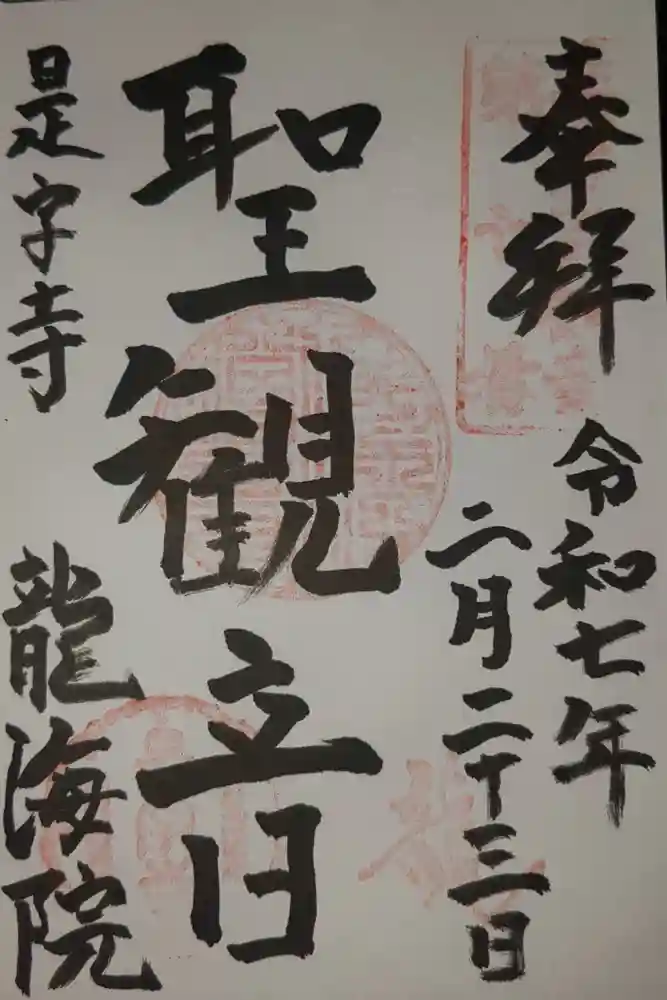 奉拝
令和七年
二月二十三日
聖観立日
是字寺
龍海院